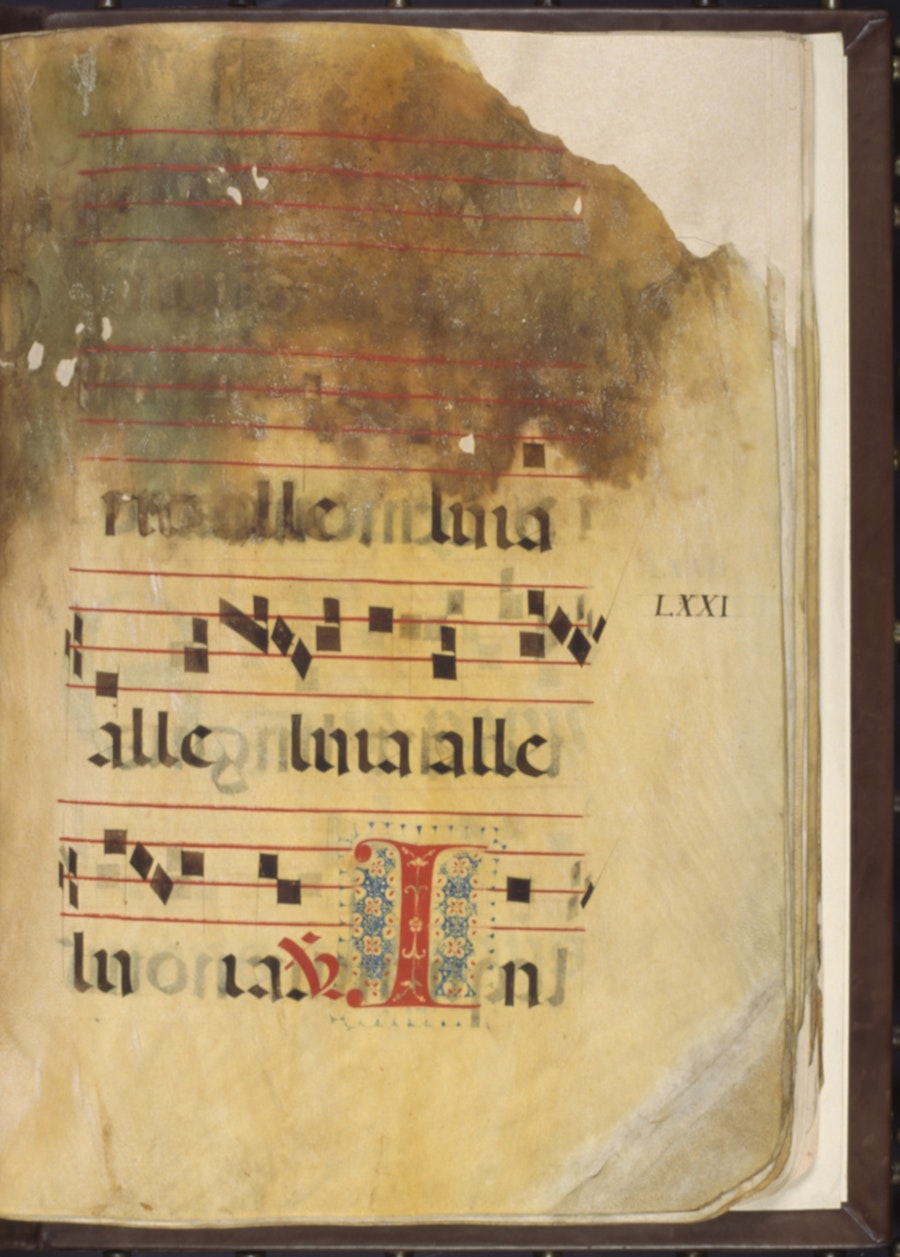 alle luia
LXXI
alle luia alle
lu ia. ℣. In